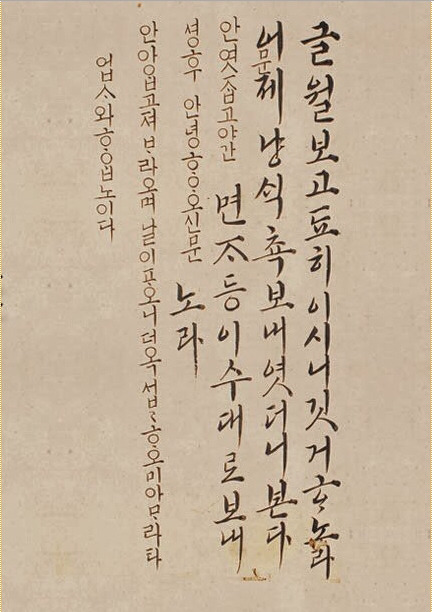 글월보고됴히이시니깃거ᄒᆞ노라
어제냥식쵹보내엿더니본다
면ᄌᆞ등이수대로보내
노라
문
안엿ᄌᆞᆸ고야간
셩후 안녕ᄒᆞᄋᆞ오신문
안아ᄋᆞᆸ고져ᄇᆞ라오며날이ᄑᆞ오니더옥섭섭ᄒᆞ오미아ᄆᆞ라타
업ᄉᆞ와ᄒᆞᄋᆞᆸ노이다